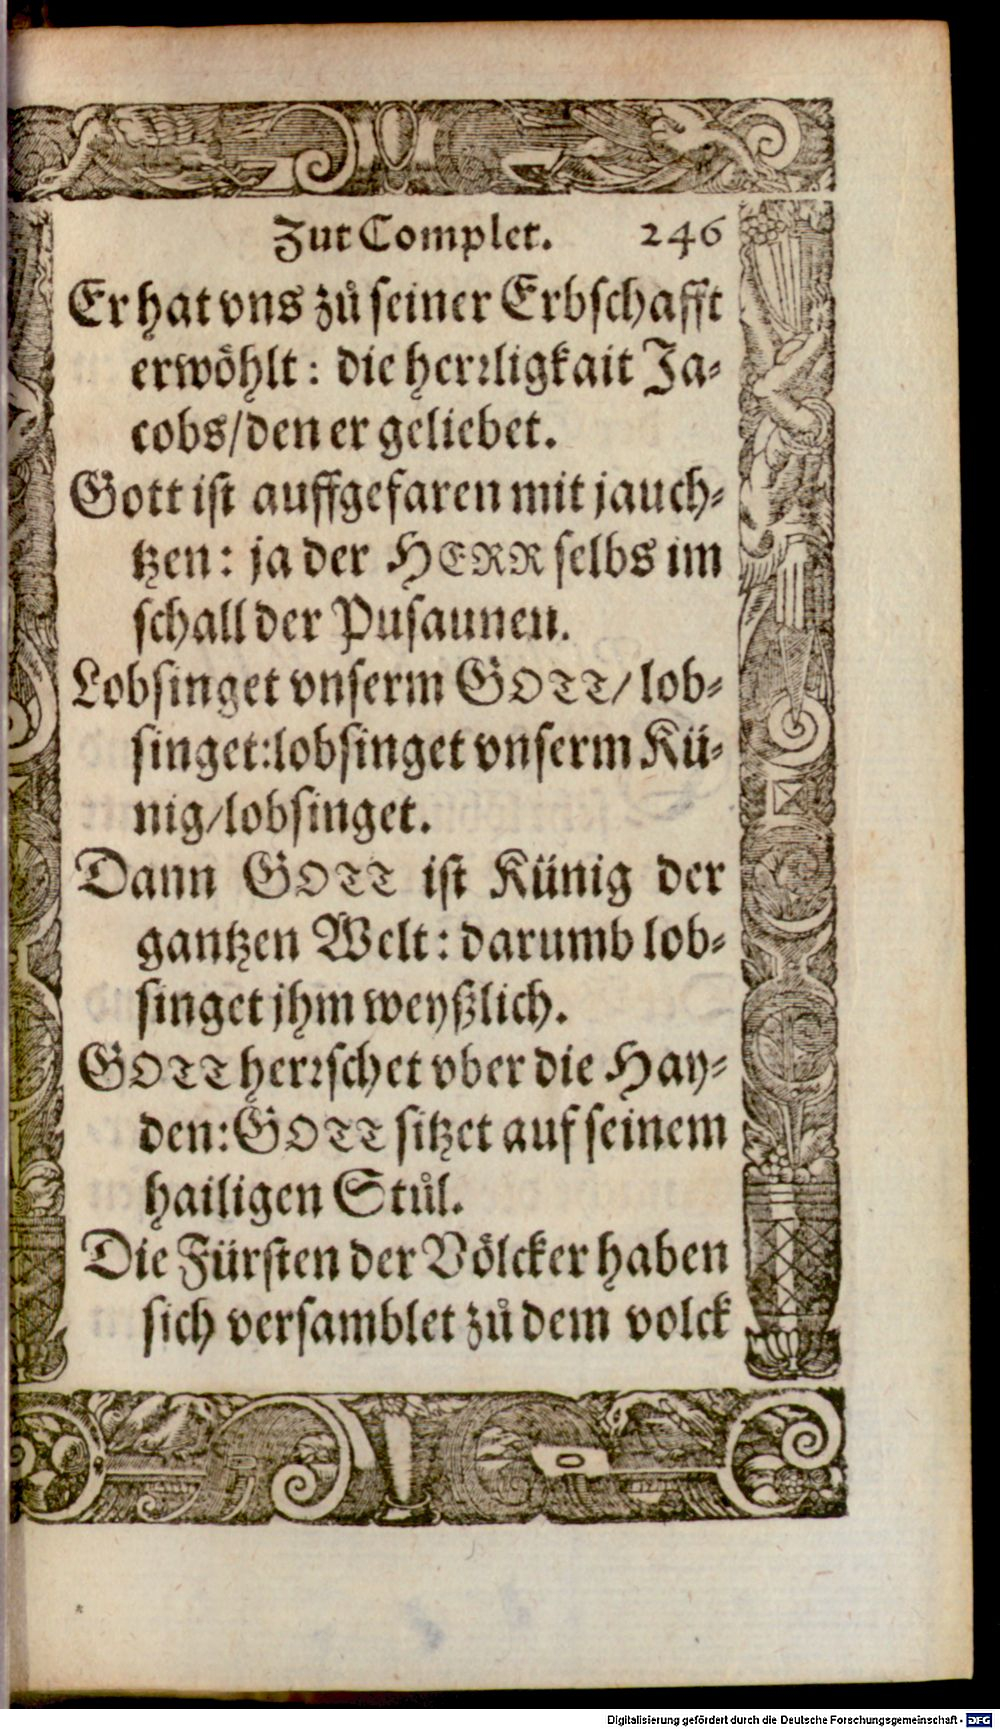 Zur Complet. 246
Er hat vns zů seiner Erbschafft
erwöhlt: die herꝛligkait Ja-
cobs/den er geliebet.
Gott ist auffgefaren mit jauch-
tzen: ja der HERR selbs im
schall der Pusaunen.
Lobsinget vnserm GOTT/ lob-
singet:lobsinget vnserm Kü-
nig/lobsinget.
Dann GOTT ist Künig der
gantzen Welt: darumb lob-
singet jhm weyßlich.
GOTT herꝛschet vber die Hay-
den:GOTT sitzet auf seinem
hailigen Stůl.
Die Fürsten der Völcker haben
sich versamblet zů dem volck
Digitalisierung gefördert durch die Deutsche Forschungsgemeinschaft - DFG